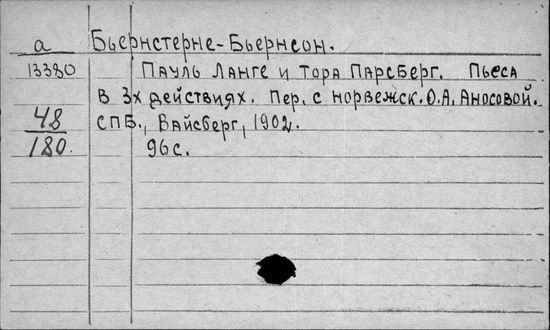 а Бьернстерне-Бьернсон.
13380 Пауль Ланге и Тора Парсберг. Пьеса
в 3х действиях. Пер. с норвежск. О.А. Аносовой.
48 СПБ., Вайсберг, 1902.
180. 96 с.